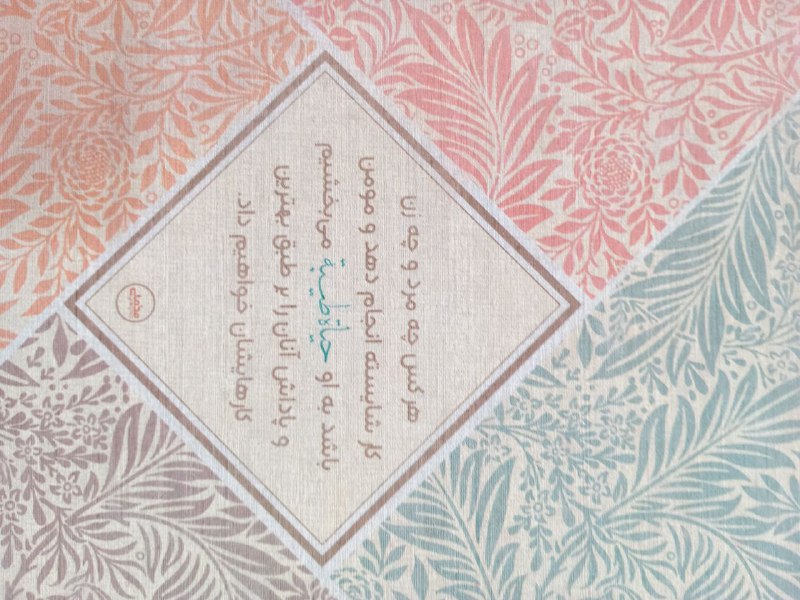 هر کس چه مرد و چه زن
کار شایسته انجام دهد و مومن
باشد به او حیاة طیبة می‌بخشیم
و پاداش آنان را بر طبق بهترین
کارهایشان خواهیم داد.